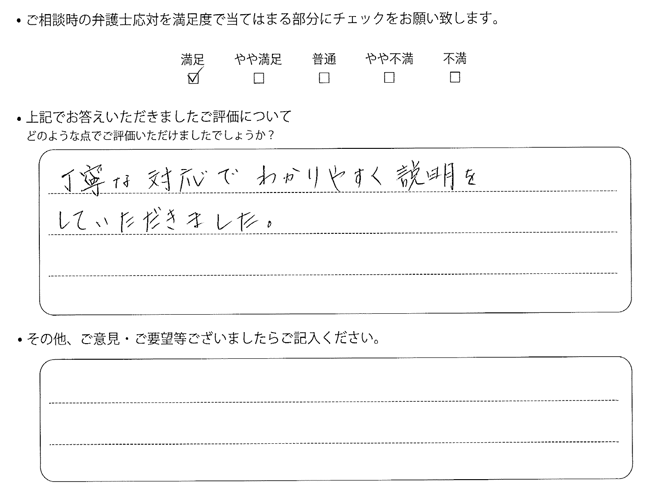 ・ご相談時の弁護士応対を満足度で当てはまる部分にチェックをお願い致します。
満足 やや満足 普通 やや不満 不満
☑ ☐ ☐ ☐ ☐
・上記でお答えいただきましたご評価について
どのような点でご評価いただけましたでしょうか？
丁寧な対応でわかりやすく説明を
していただきました。
・その他、ご意見・ご要望等ございましたらご記入ください。